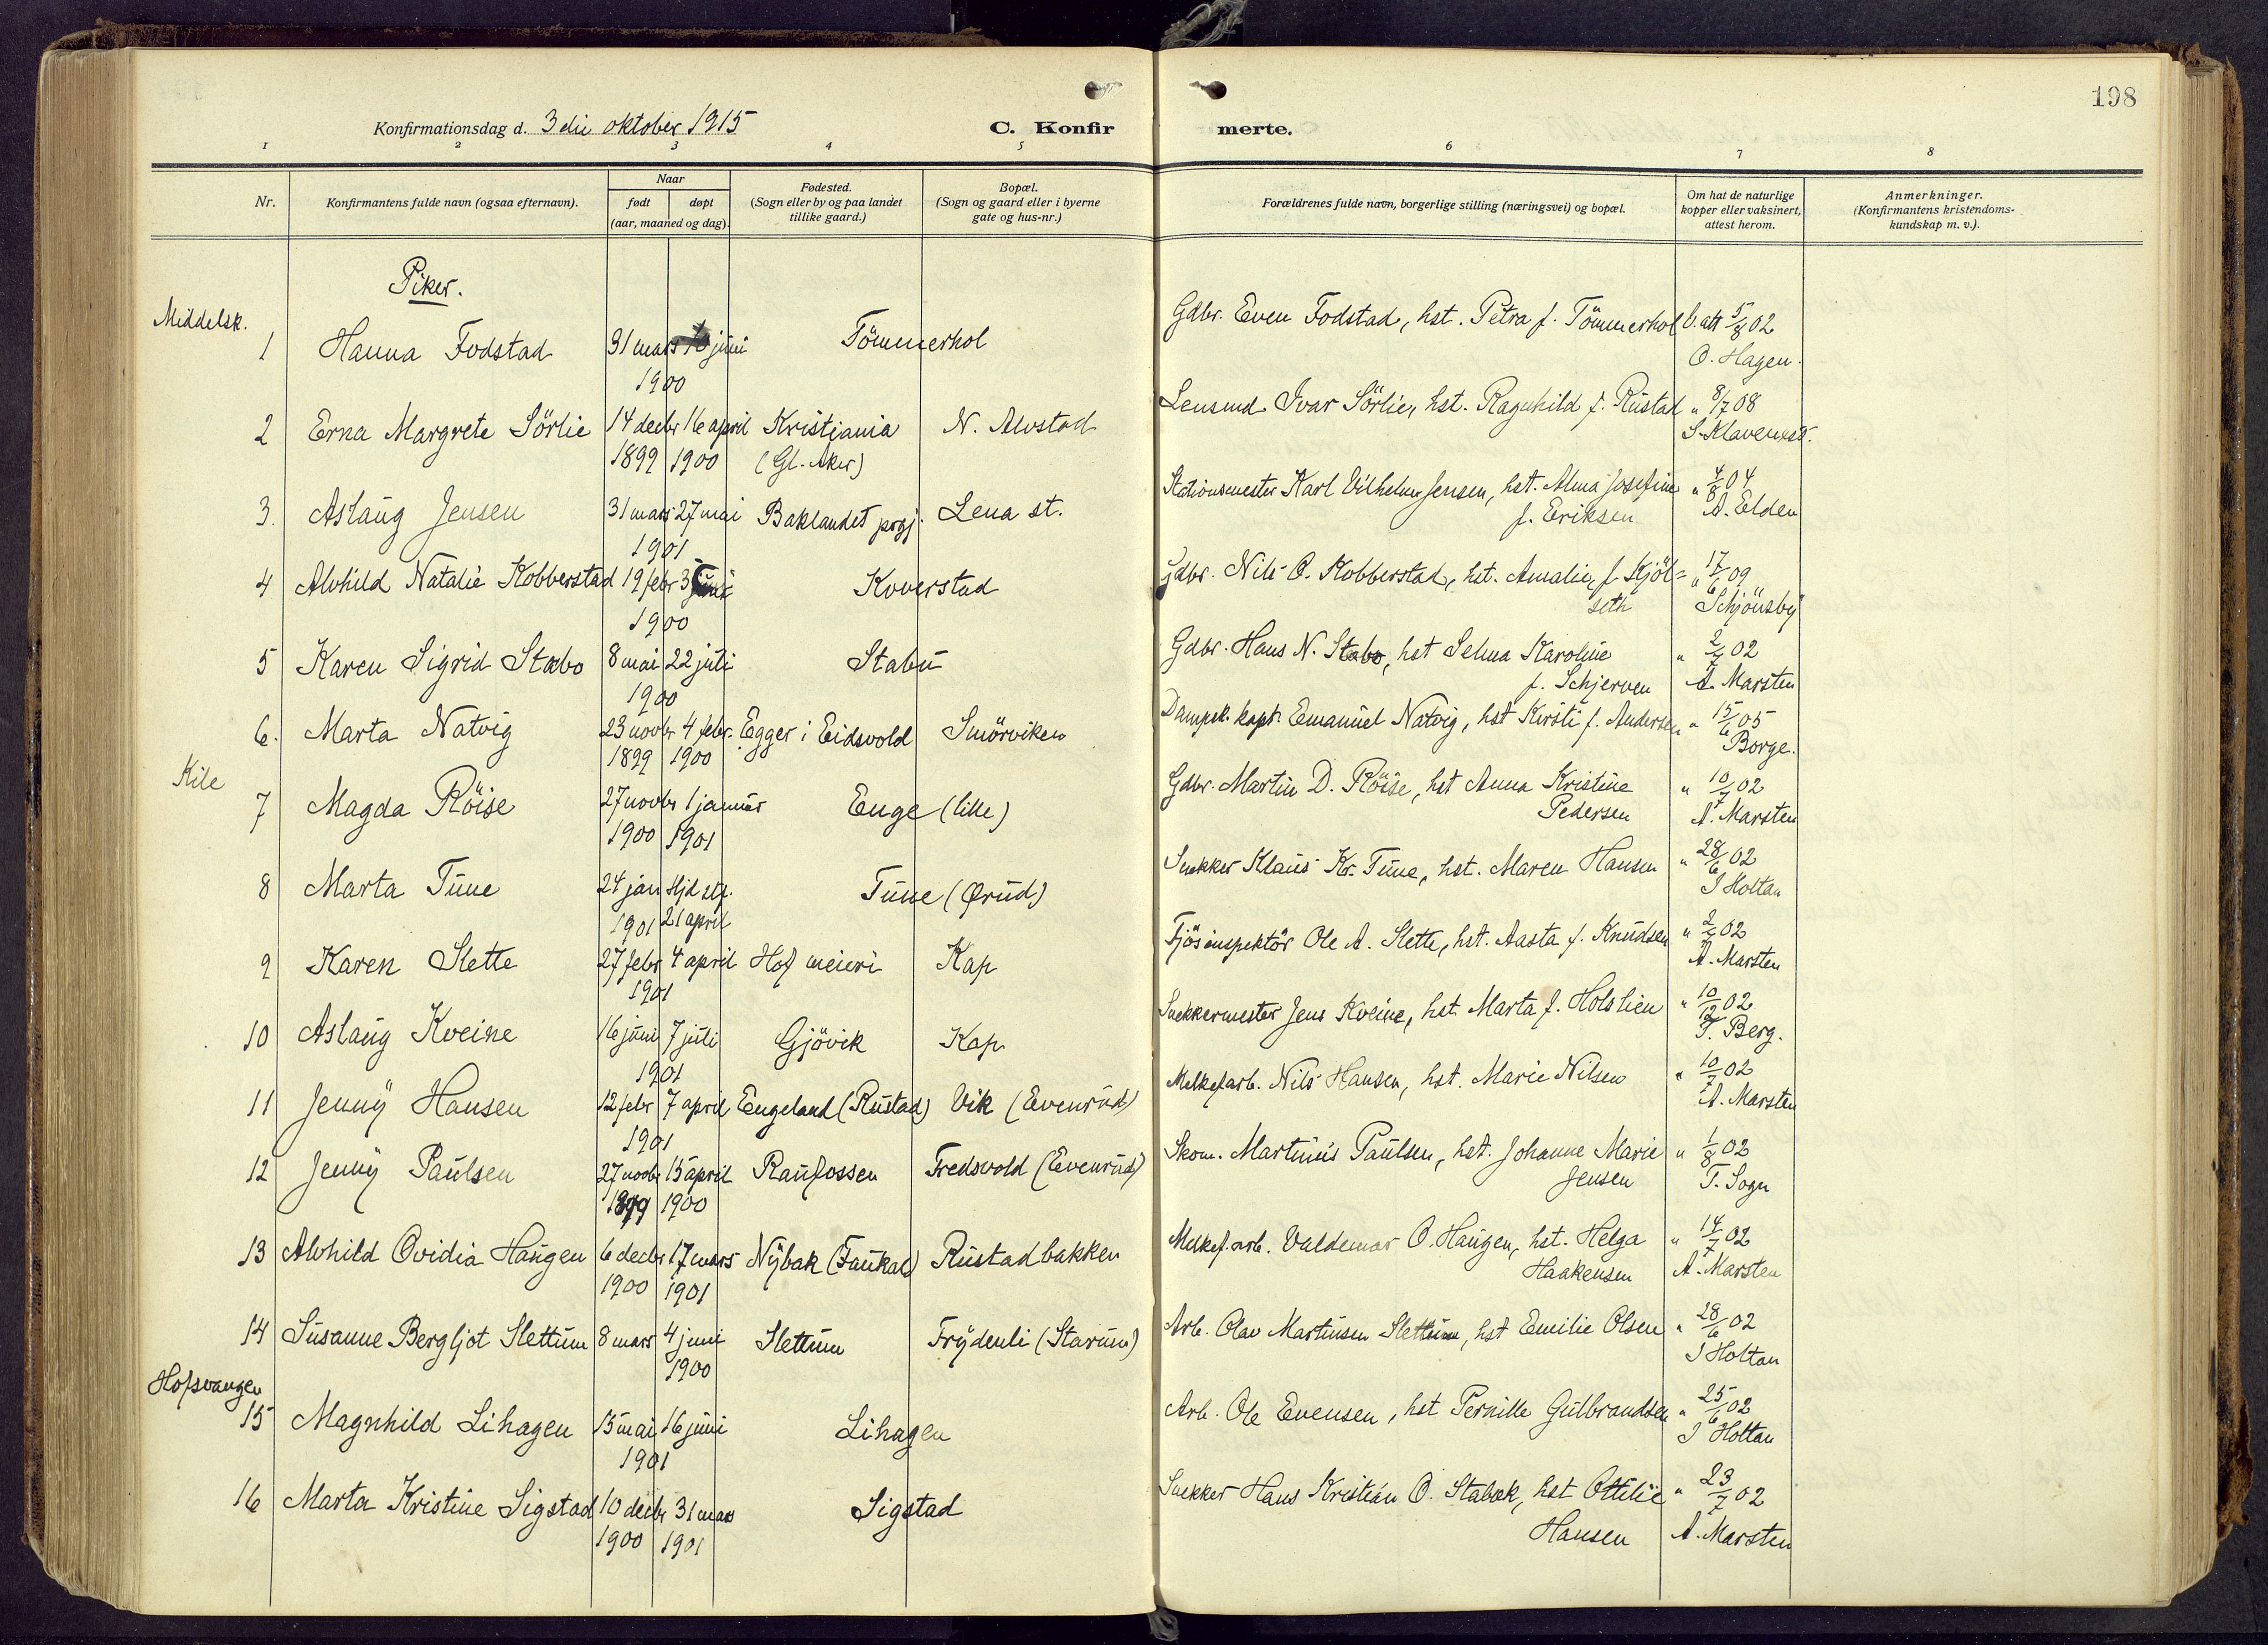 198
Konfirmationsdag d. 3die oktober 1915
C. Konfir merte.
1 2 3 4 5 6 7 8
Nr.
Konfirmantens fulde navn (ogsaa efternavn).
Naar
født døpt
(aar, maaned og dag).
Fødested.
(Sogn eller by og paa landet
tillike gaard.)
Bopæl.
(Sogn og gaard eller i byerne
gate og hus-nr.)
Forældrenes fulde navn, borgerlige stilling (næringsvei) og bopæl.
Om hat de naturlige
kopper eller vaksinert,
attest herom.
Anmerkninger.
(Konfirmantens kristendoms-
kundskap m. v.).
Piker.
Middelsk.
1 Hanna Fodstad 31 mars juni Tömmerhol Gdbr. Even Fodstad, hst. Petra f. Tömmerhol b. att 5/8 02
1900 O. Hagen.
2 Erna Margrete Sörlie 14 decbr 16 april Kristiania N. Alvstad Lensmd. Ivar Sörlie, hst. Ragnhild f. Rustad " 8/7 08
1899 1900 (Gl. Aker) S. Klaveness.
3. Aslaug Jensen 31 mars 27 mai Baklandet prgj. Lena st. Stationsmester Karl Vilhelm Jensen, hst. Alma Josefine " 4/8 04
1901 f. Eriksen A. Elden
4 Alvhild Natalie Kobberstad 19 febr 3 juni Koverstad Gdbr. Nils O. Kobberstad, hst. Amalie f. Kjöl= " 17/6 09
1900 seth Schjönsby
5 Karen Sigrid Stabo 8 mai 22 juli Stabu Gdbr. Hans N. Stabo, hst Selma Karoline " 2/7 02
1900 f. Schjerven A. Marsten
6. Marta Natvig 23 novbr 4 febr. Egger i Eidsvold Smörviken Dampsk. kapt. Emanuel Natvig, hst Kirsti f. Andersen " 15/6 05
1899 1900 Borge.
Kile
7 Magda Röise 27 novbr 1 januar Enge (lille) Gdbr. Martin D. Röise, hst Anna Kristine " 10/7 02
1900 1901 Pedersen A. Marsten
8 Marta Tune 24 jan Hjd stf. Tune (Ørud) Snekker Klaus Kr. Tune, hst. Maren Hansen " 28/6 02
1901 21 april J Holtan
9 Karen Slette 27 febr 4 april Hof meieri Kap Fjösinspektör Ole A. Slette, hst. Aasta f. Knudsen " 2/7 02
1901 A. Marsten
10 Aslaug Kveine 16 juni 7 juli Gjövik Kap Snekkermester Jens Kveine, hst. Marta f. Holslien " 10/12 02
1901 T. Berg.
11 Jenny Hansen 12 febr 7 april Engeland (Rustad) Vik (Evenrud) Melkef.arb. Nils Hansen, hst. Marie Nilsen " 10/7 02
1901 A. Marsten
12 Jenny Paulsen 27 novbr 15 april Raufossen Fredsvold (Evenrud) Skom. Martinus Paulsen, hst. Johanne Marie " 1/8 02
1899 1900 Jensen T. Sogn
13 Alvhild Ovidia Haugen 6 decbr 17 mars Nybak (Faukal) Rustadbakken Melkef.arb. Valdemar O. Haugen, hst. Helga " 14/7 02
1900 1901 Haakensen A. Marsten
14 Susanne Bergljot Slettum 8 mars 4 juni Slettum Frydenli (Starum) Arb. Olav Martinsen Slettum, hst Emilie Olsen " 28/6 02
1900 J Holtan
Hofsvangen
15 Magnhild Lihagen 15 mai 16 juni Lihagen Arb. Ole Evensen, hst Pernille Gulbrandsen " 25/6 02
1901 J Holtan
16 Marta Kristine Sigstad 10 decbr 31 mars Sigstad Snekker Hans Kristian O. Stabæk, hst Ottilie " 23/7 02
1900 1901 Hansen A. Marsten